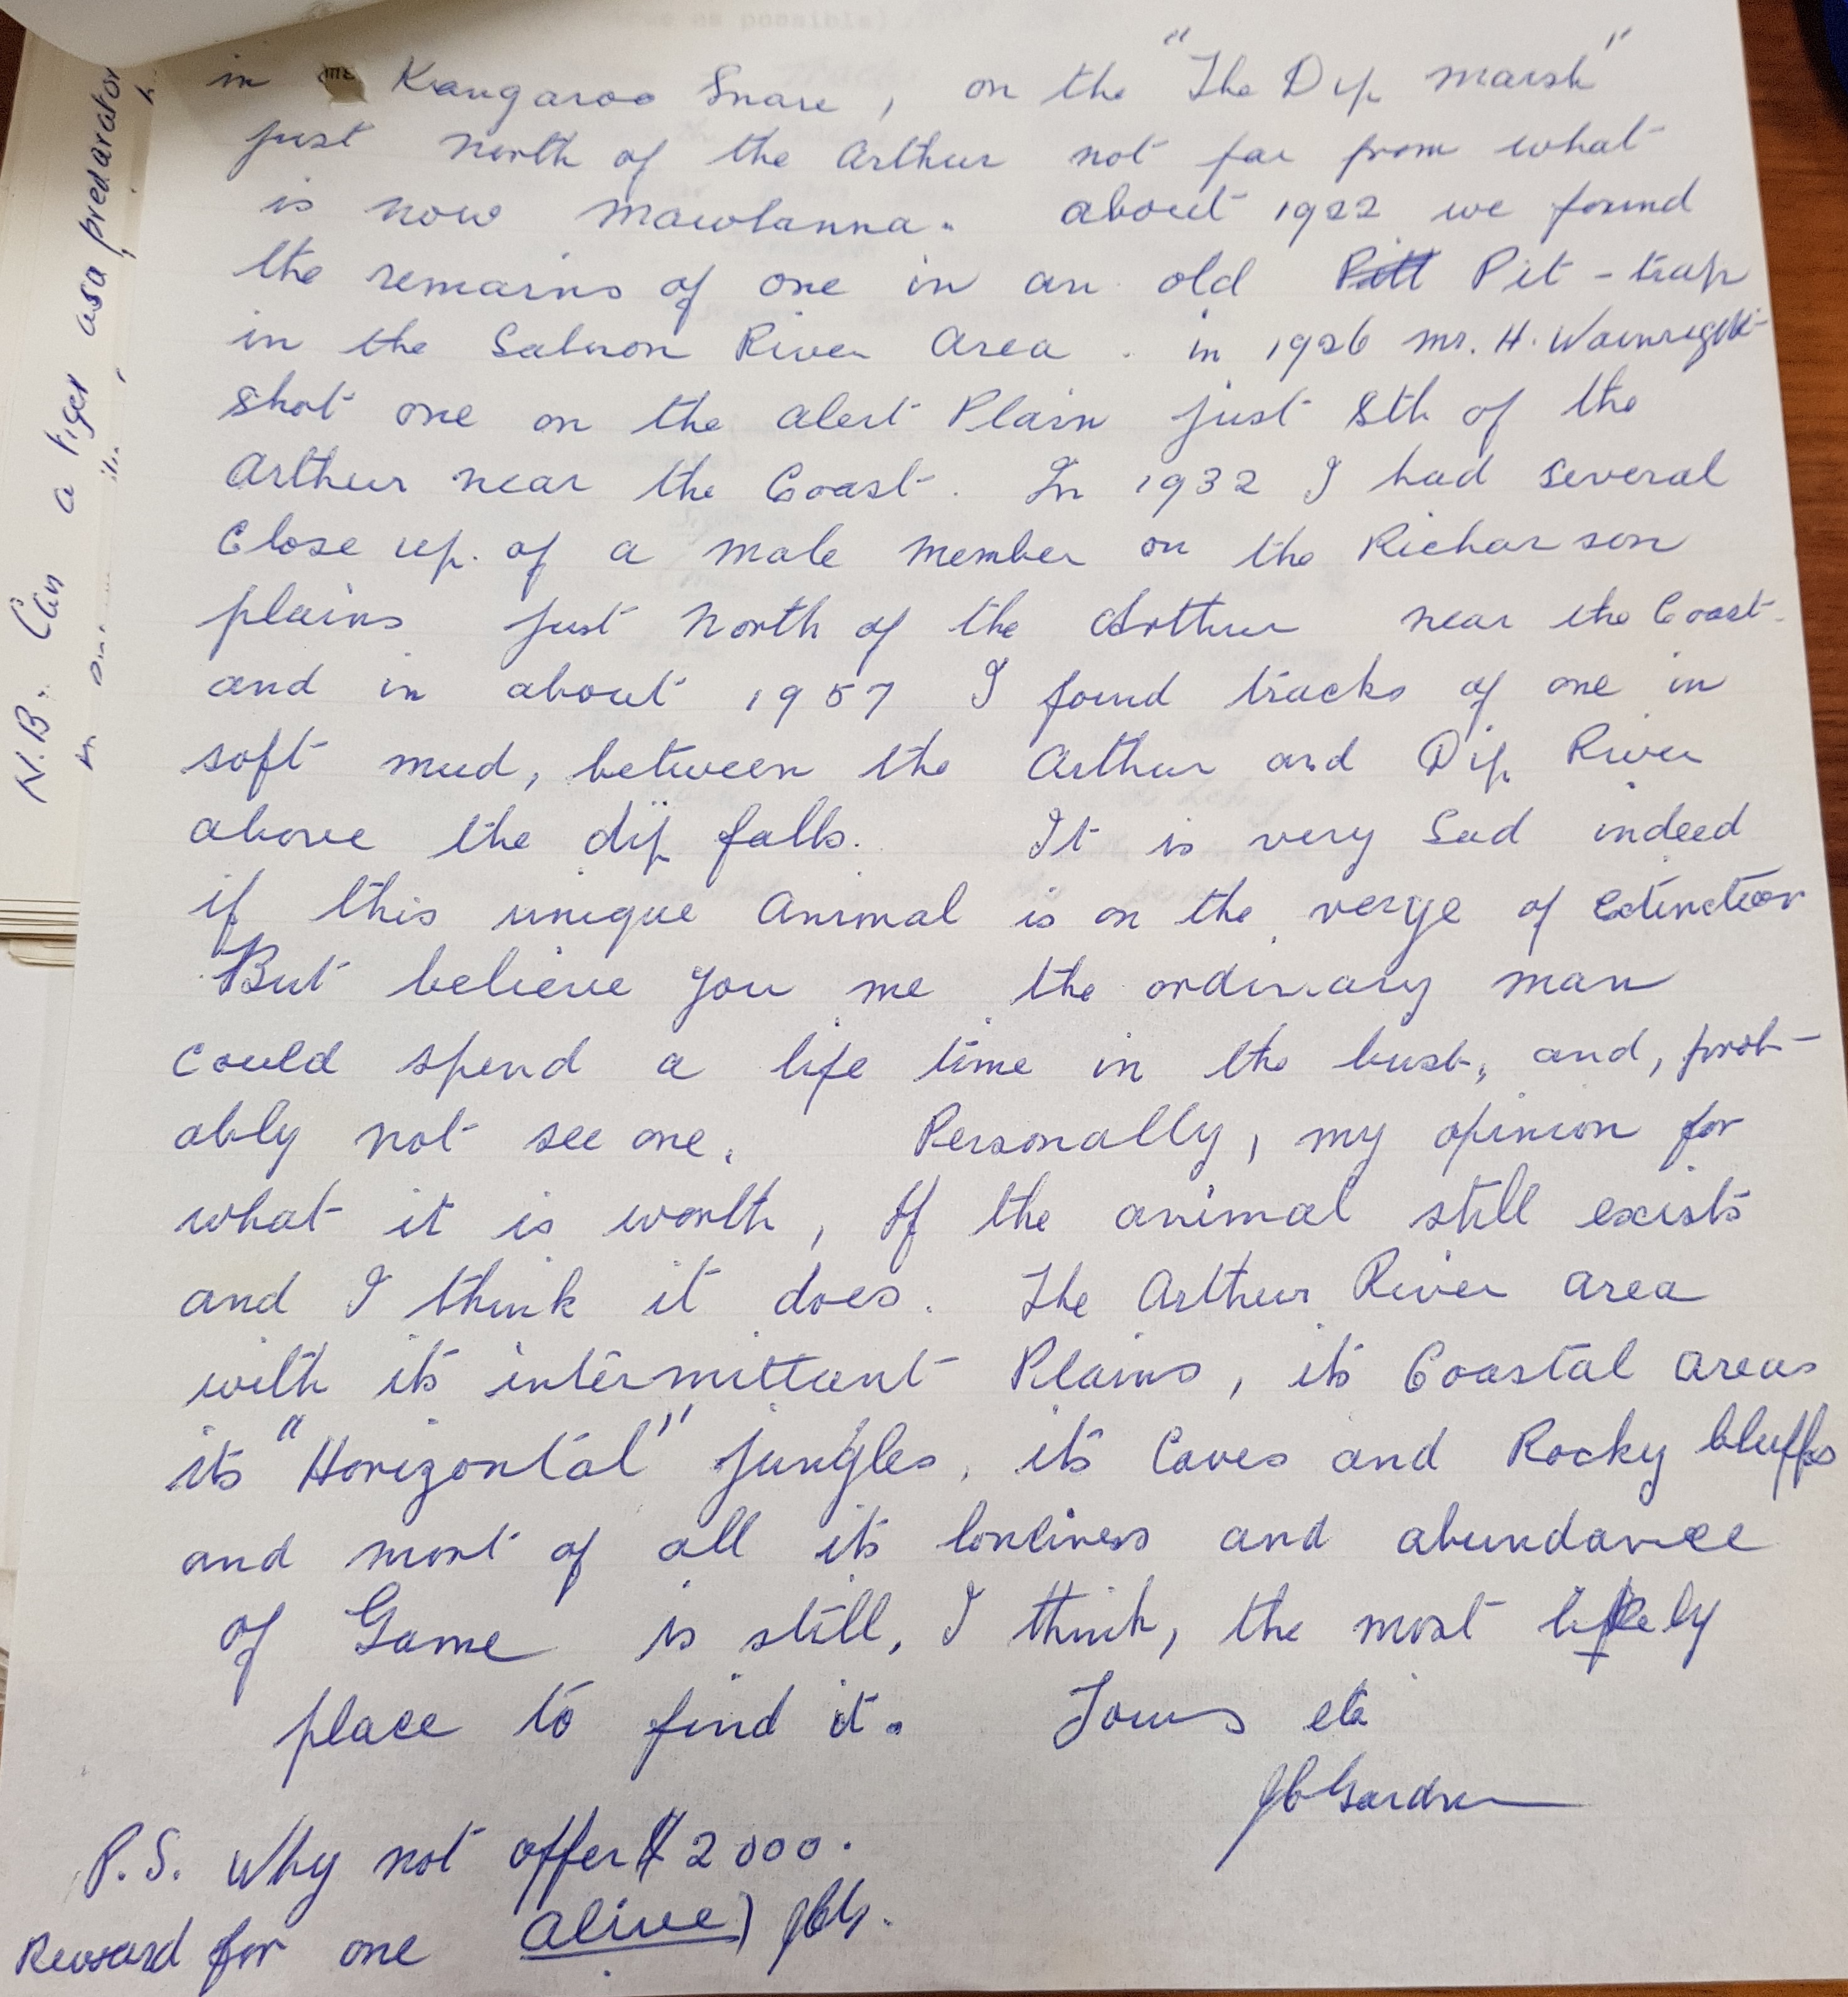 in Kangaroo Snare, on the "The Dip marsh"
just North of the Arthur not far from what
is now Mawbanna. about 1922 we found
the remains of one in an old Pitt Pit-trap
in the Salmon River Area. in 1926 Mr. H. Wainright
shot one on the Alert Plain just Sth of the
Arthur near the Coast. In 1932 I had several
Close up. of a male member on the Richarson
plains just North of the Arthur near the Coast.
and in about 1957 I found tracks of one in
soft mud, between the Arthur and Dip River
above the dip falls. It is very Sad indeed
if this unique Animal is on the verge of extinction
But believe you me the ordinary man
could spend a life time in the bush, and, prob-
ably not see one. Personally, my opinion for
what it is worth, If the animal still exists
and I think it does. The Arthur River area
with its intermittant Plains, its Coastal areas
its "Horizontal" jungles, its Caves and Rocky bluffs
and most of all its lonliness and abundance
of Game is still, I think, the most likely
place to find it. Yours etc
Gardner
P.S. Why not offer $2000.
Reward for one alive)
N.B. Can a tiger as a predarator